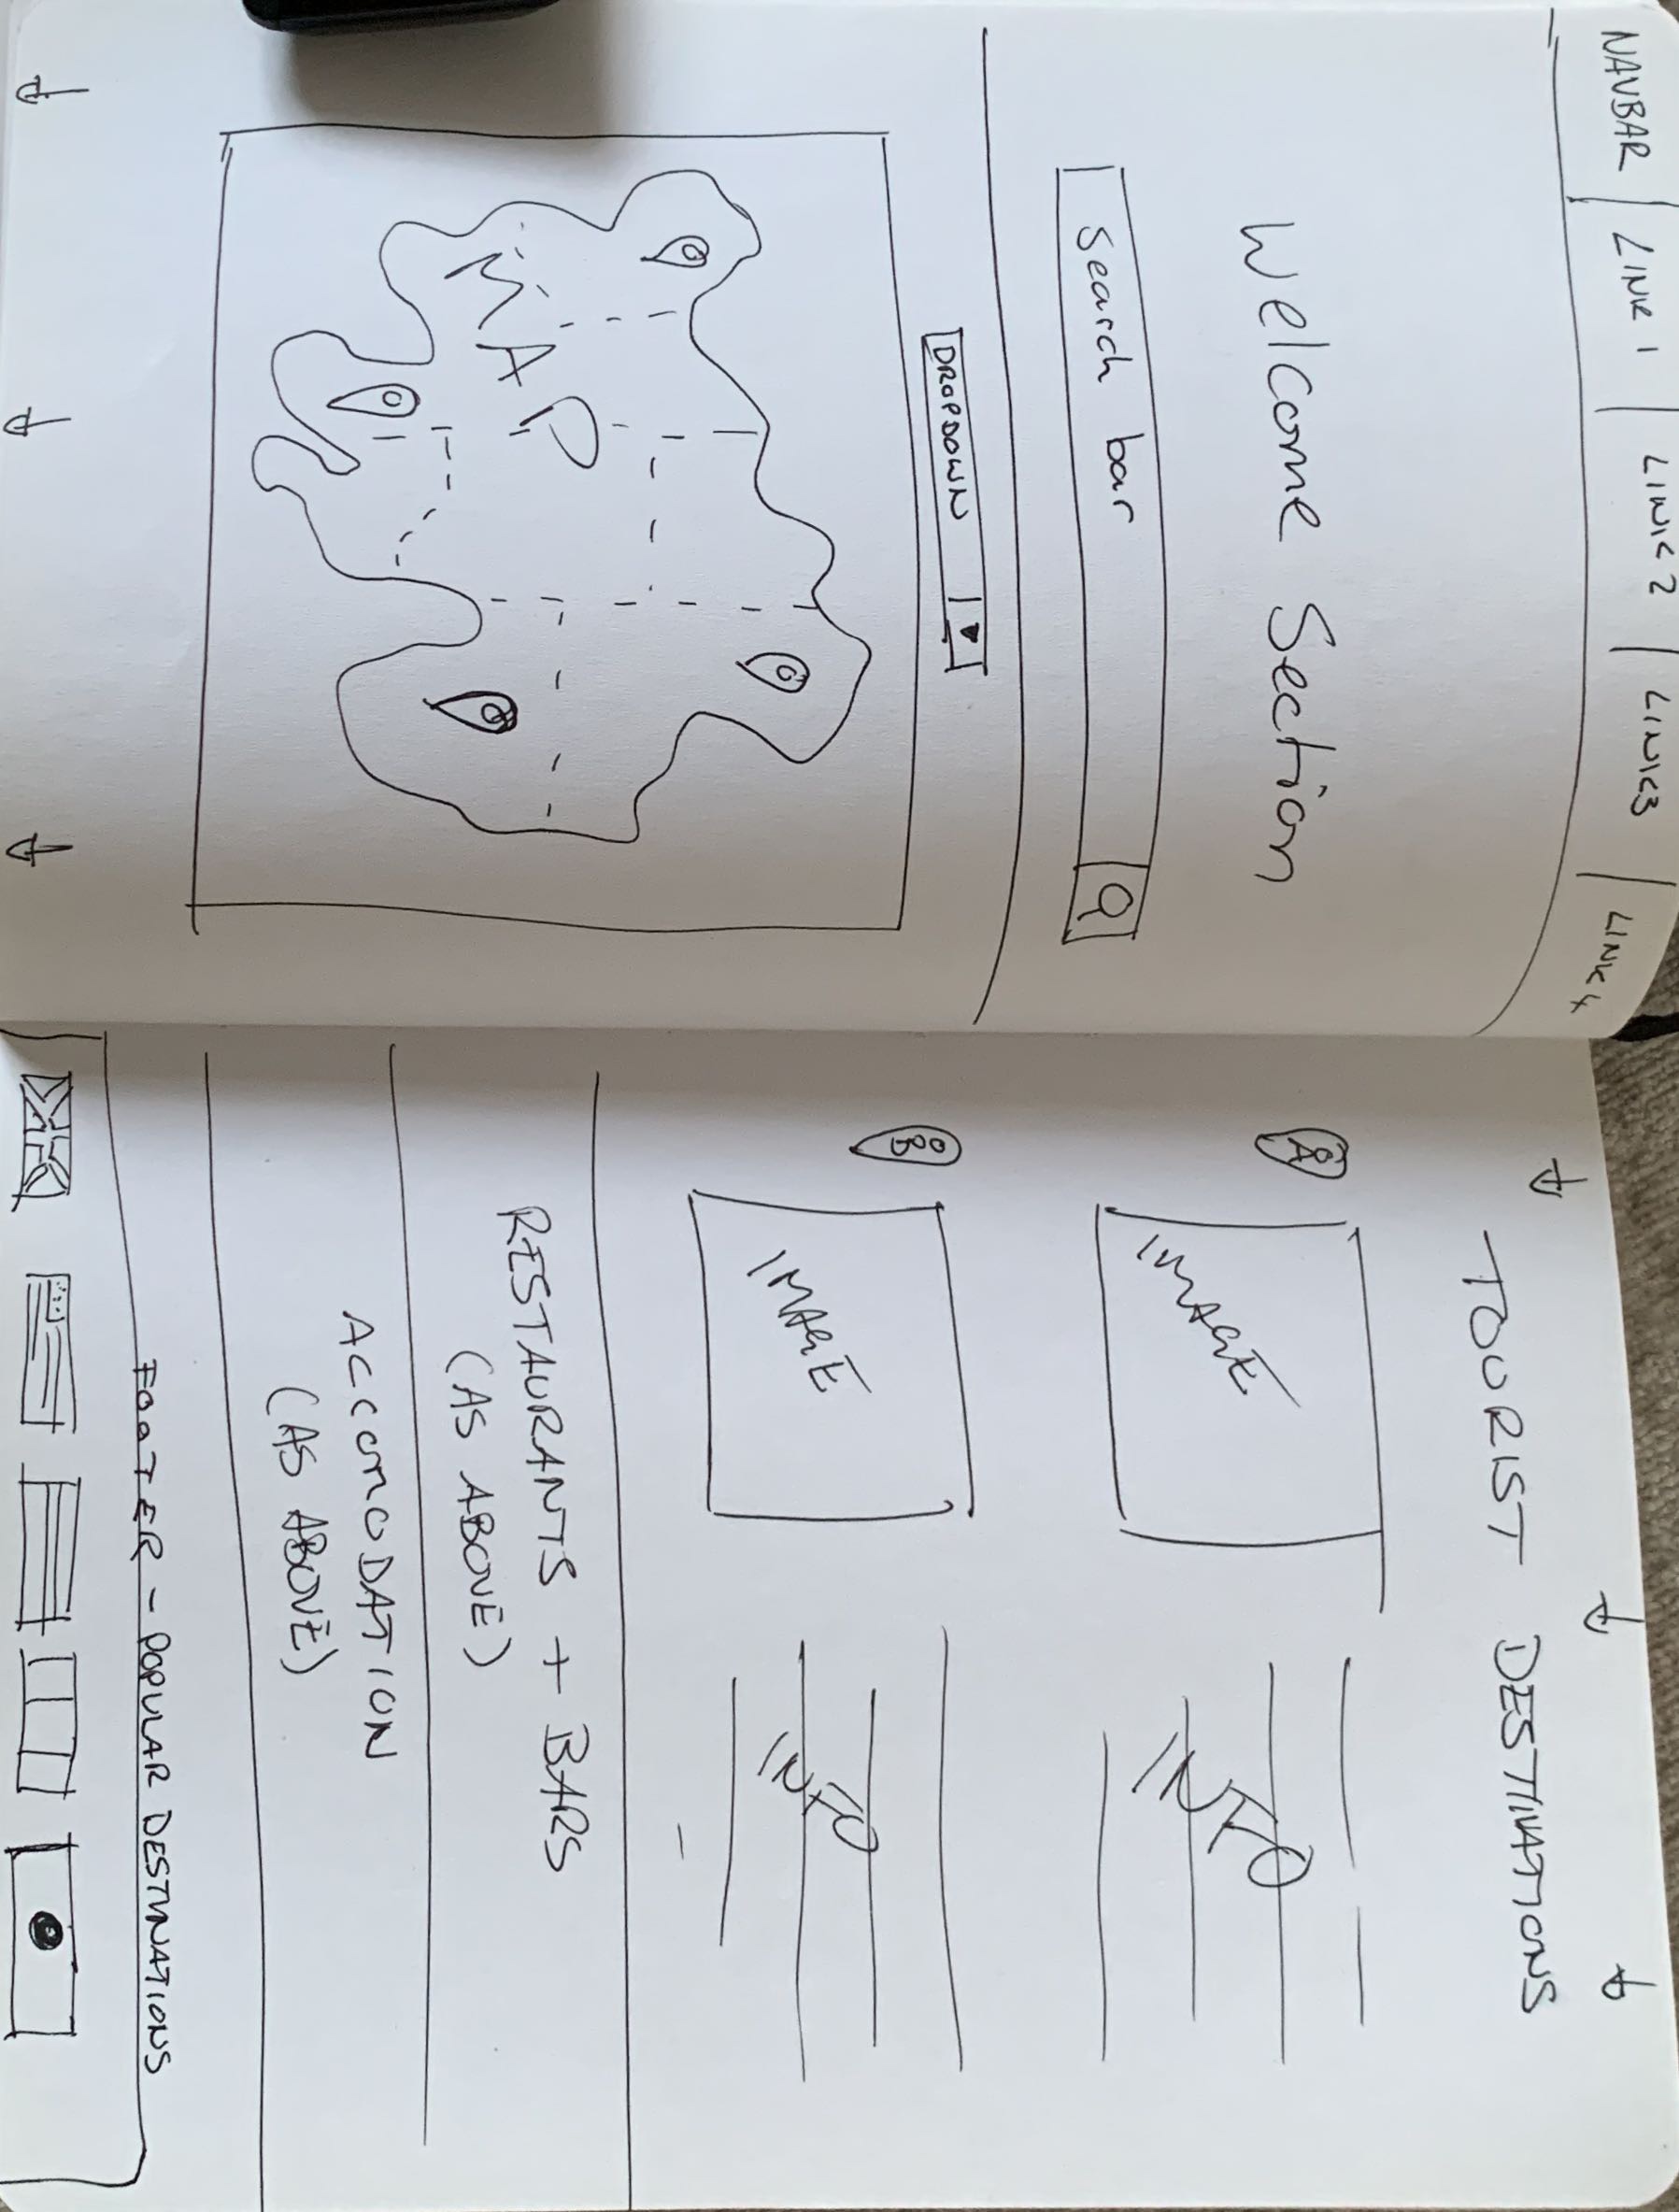 NAVBAR
LINK 1
LINK 2
LINK3
LINK 4
Welcome Section
Search bar
DROPDOWN
MAP
TOURIST DESTINATIONS
A
IMAGE
INFO
B
IMAGE
INFO
RESTAURANTS + BARS
(AS ABOVE)
ACCOMODATION
(AS ABOVE)
FOOTER - POPULAR DESTINATIONS